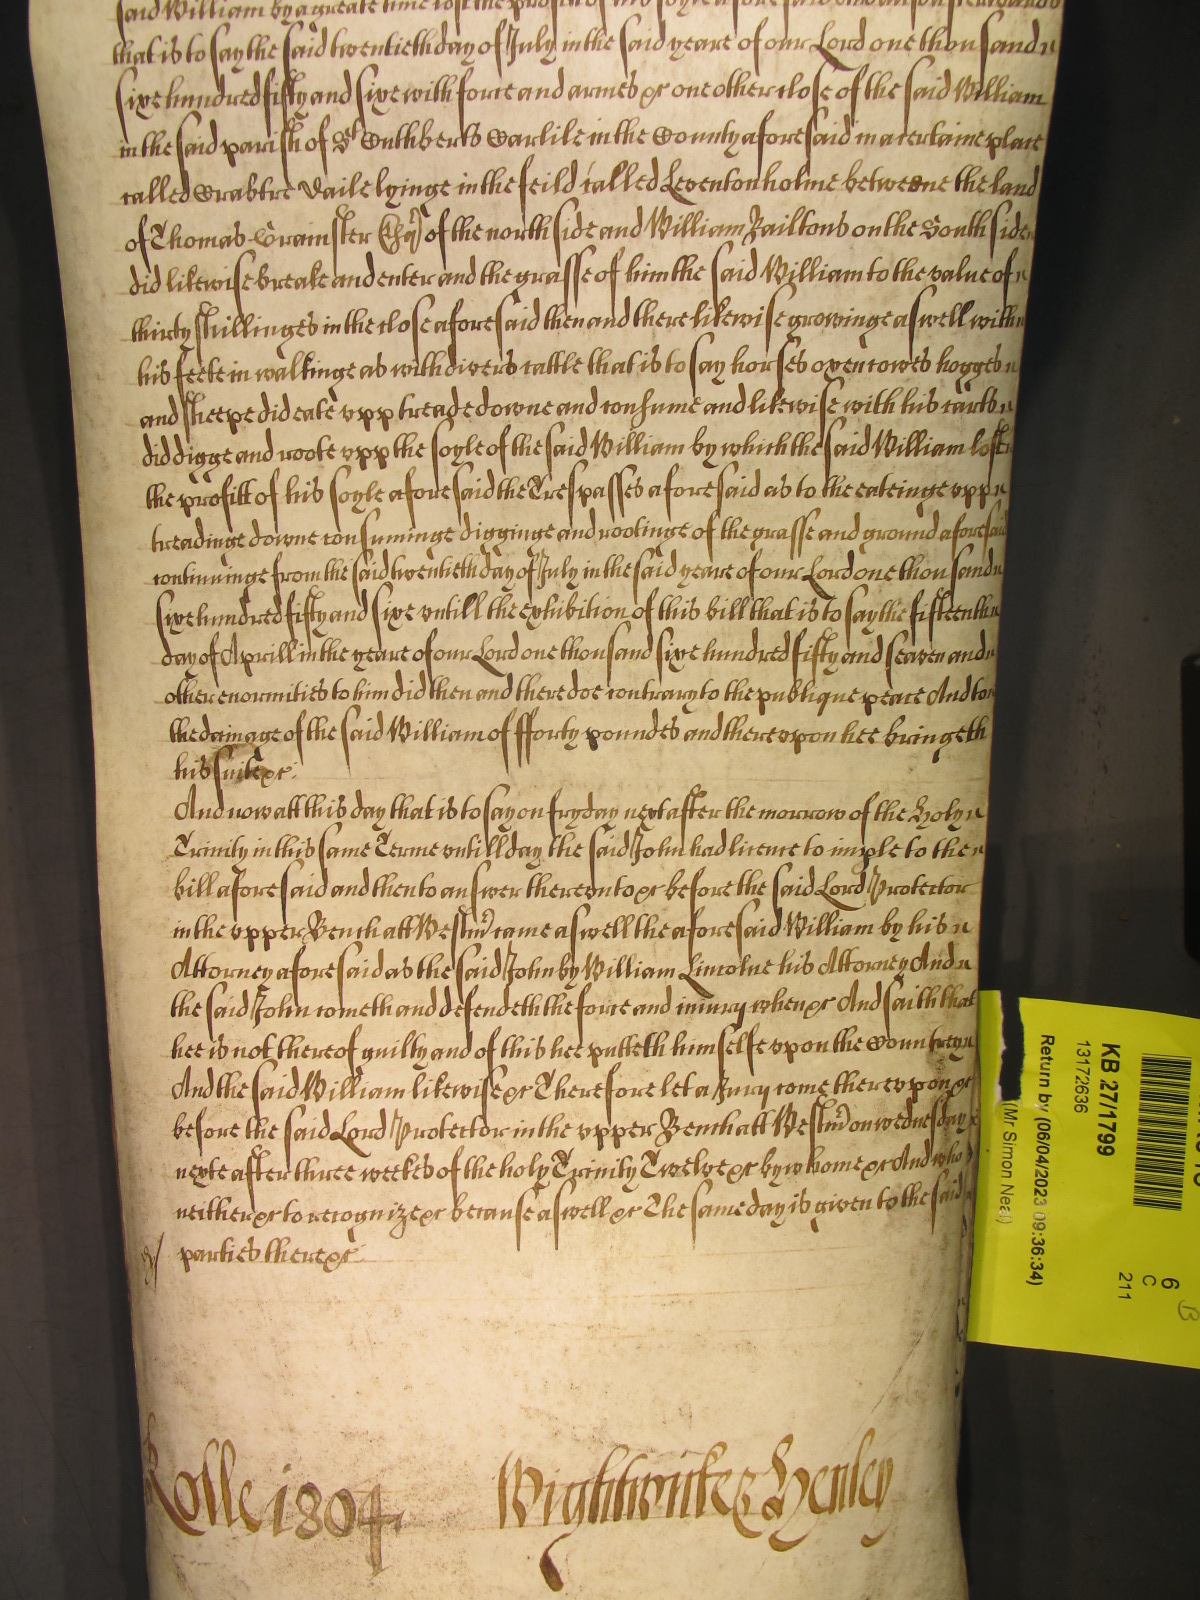 said William by a greate time lost the profitt of his soyle aforesaid And also afterwards
that is to say the said twentieth day of July in the said yeare of our Lord one thousand
sixe hundred fifty and sixe with force and armes &c one other close of the said William
in the said parish of St Cuthberts Carlile in the County aforesaid in a certaine place
called Crabtre Daile lyinge in the feild called Leventonholme betweene the land
of Thomas Crainster of the north side and William Railtons on the South side
did likewise breake and enter and the grasse of him the said William to the value of
thirty shillinges in the close aforesaid then and there likewise growinge aswell with
his feete in walkinge as with divers cattle that is to say horses oxen cowes hogges
and sheepe did eate upp treade downe and consume and likewise with his carts
did digge and roote upp the soyle of the said William by which the said William lost
the profitt of his soyle aforesaid the Trespasses aforesaid as to the eateinge upp
treadinge downe consuminge digginge and rootinge of the grasse and ground aforesaid
continuinge from the said twentieth day of July in the said yeare of our Lord one thousand
sixe hundred fifty and sixe untill the exhibition of this bill that is to say the fifteenth
day of Aprill in the yeare of our Lord one thousand sixe hundred fifty and seaven and
other enormities to him did then and there doe contrary to the publique peace And to
the damage of the said William of fforty poundes and thereupon hee bringeth
his suite &c.
And now att this day that is to say on fryday next after the morrow of the Holy
Trinity in this same Terme untill day the said John had licence to imple to the
bill aforesaid and then to answer thereunto &c before the said Lord Protector
in the upper Bench att Westmr came aswell the aforesaid William by his
Attorney aforesaid as the said John by William Lincolne his Attorney And
the said John cometh and defendeth the force and injury when &c And saith that
hee is not thereof guilty and of this hee putteth himselfe upon the Countrey
And the said William likewise &c Therefore let a Jury come thereupon &c
before the said Lord Protector in the upper Bench att Westmr on wednesday
nexte after three weekes of the holy Trinity Twelve &c by whome &c And who
neither &c to recognize &c because aswell &c The same day is given to the said
parties there &c
Rolle 1804 Wightwicke & Henley
KB 27/1799
13172636
Return by (06/04/2023 09:36:34)
(Mr Simon Neal)
6
C
211